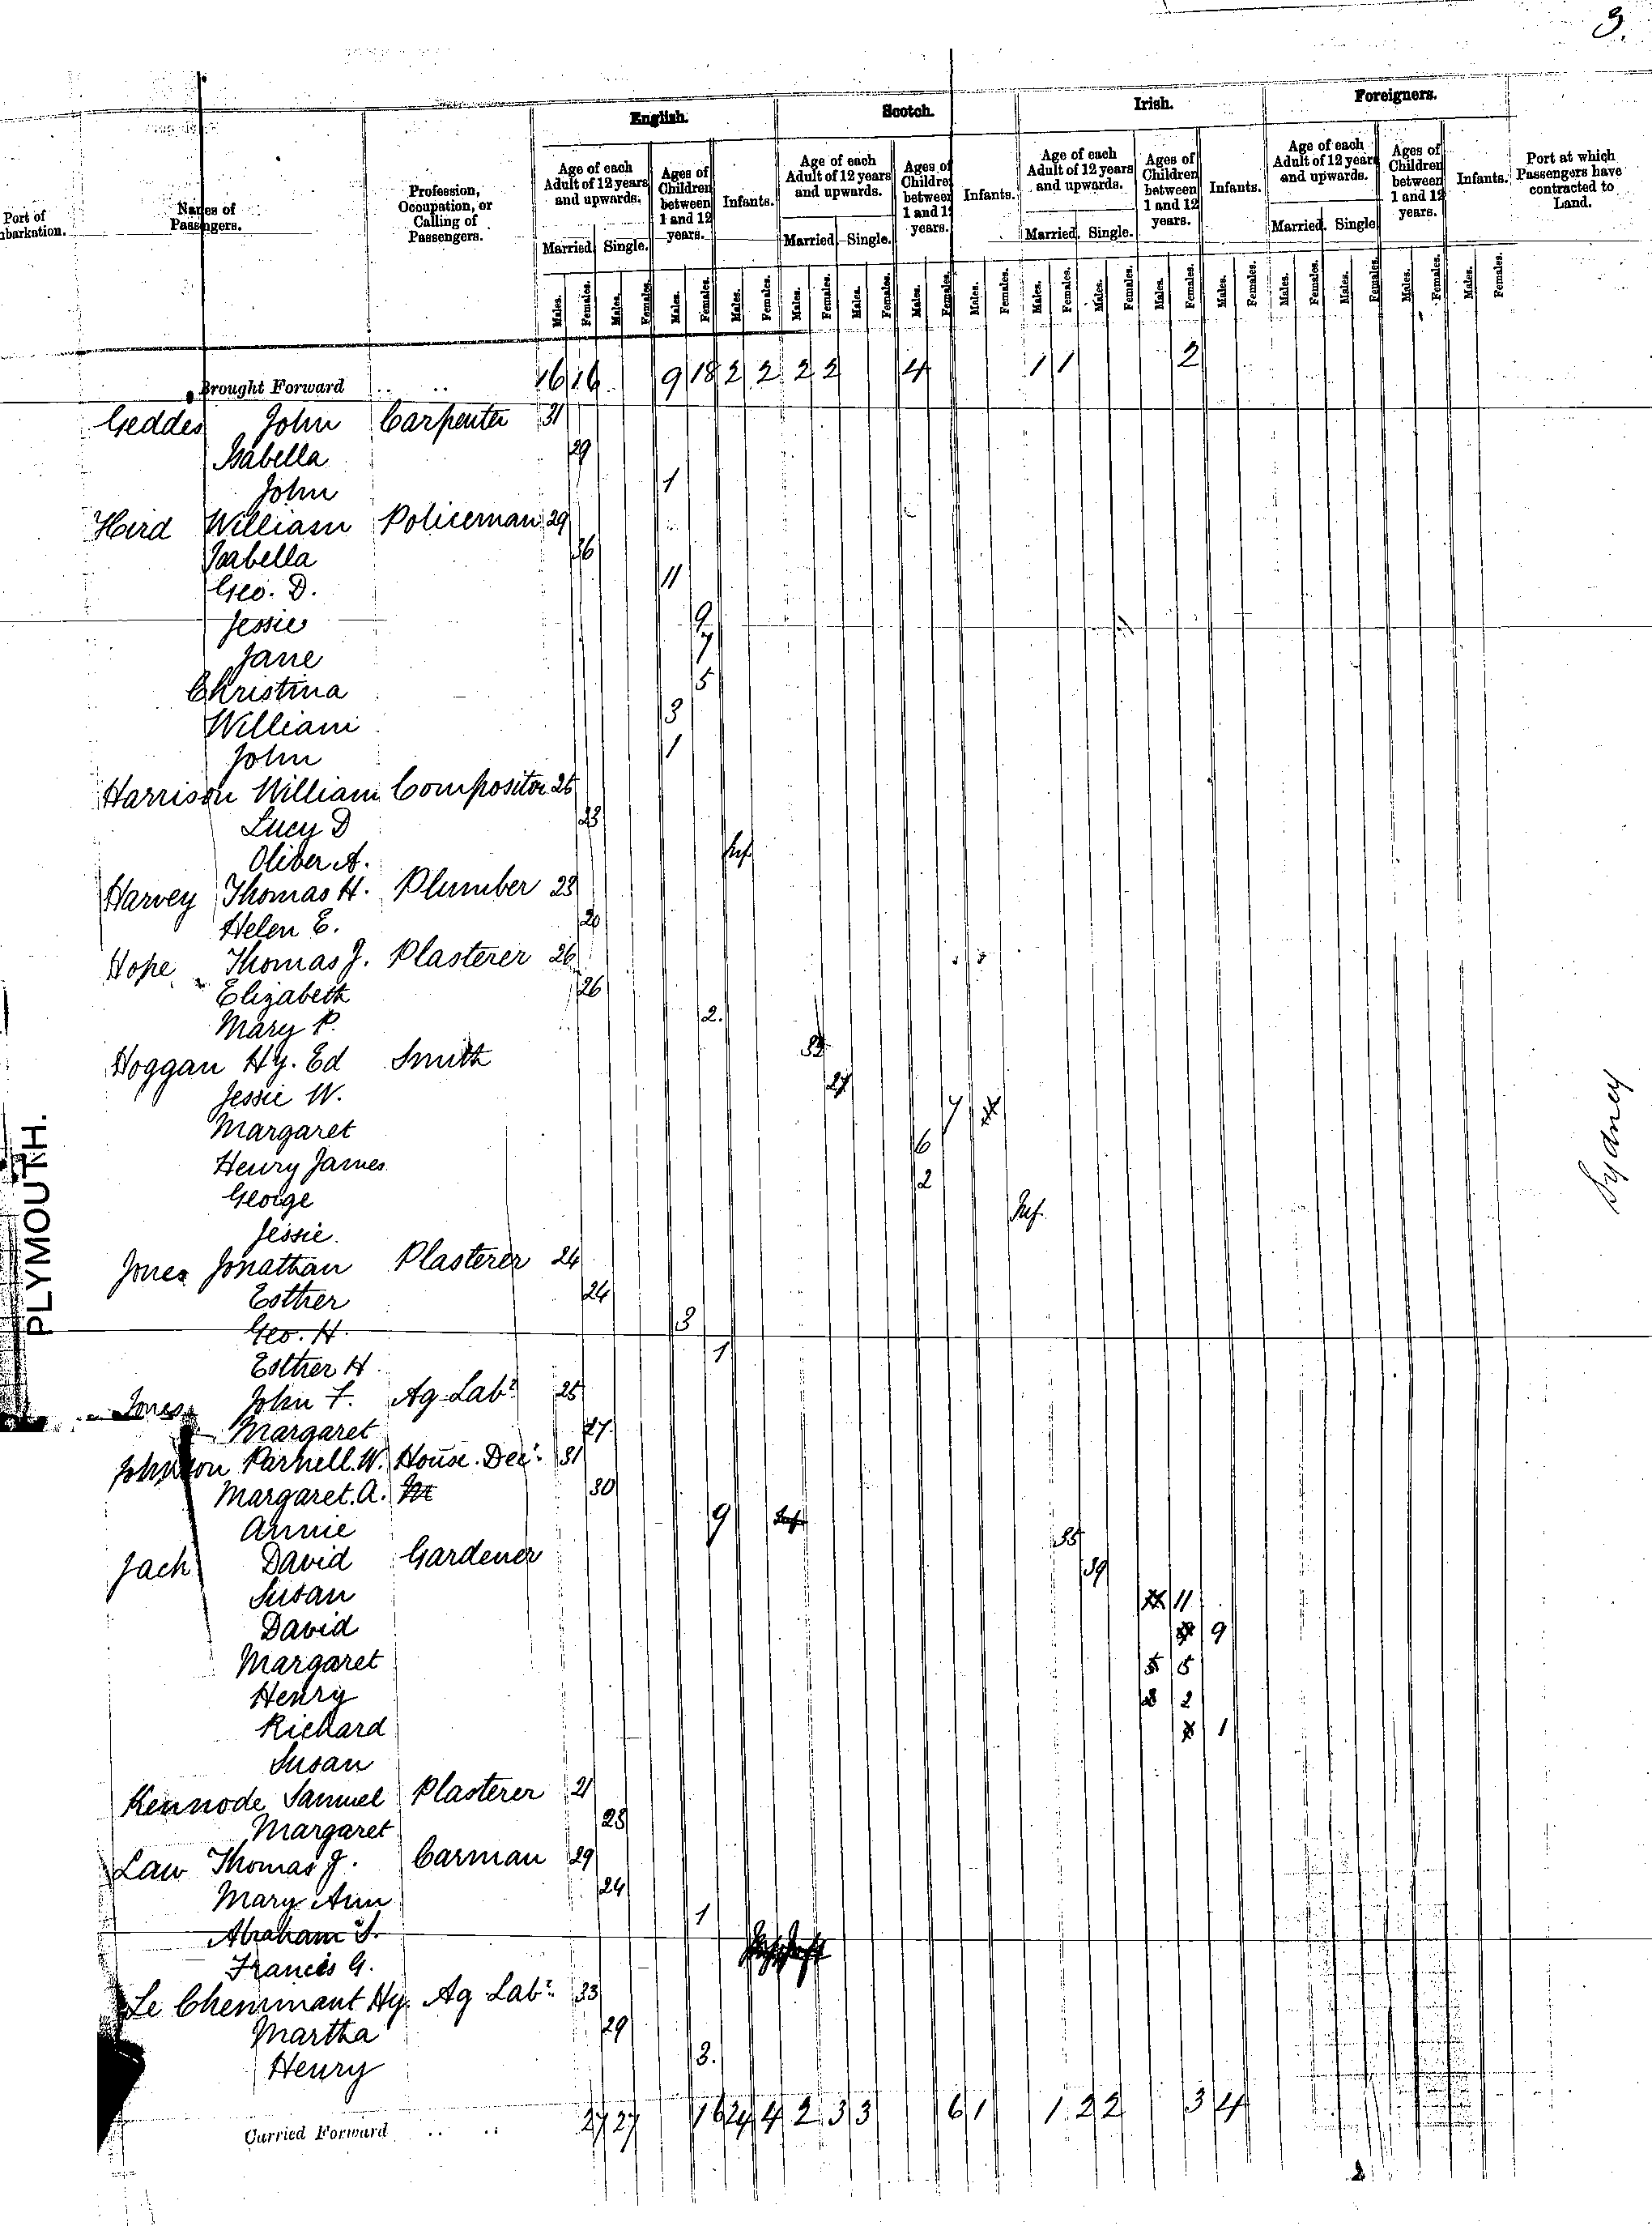 3.
English. Scotch. Irish. Foreigners.
Port of Embarkation.
Names of Passengers.
Profession, Occupation, or Calling of Passengers.
Age of each Adult of 12 years and upwards. Ages of Children between 1 and 12 years. Infants.
Age of each Adult of 12 years and upwards. Ages of Children between 1 and 12 years. Infants.
Age of each Adult of 12 years and upwards. Ages of Children between 1 and 12 years. Infants.
Age of each Adult of 12 years and upwards. Ages of Children between 1 and 12 years. Infants.
Port at which Passengers have contracted to Land.
Married. Single. Married. Single. Married. Single. Married. Single.
Males. Females. Males. Females. Males. Females. Males. Females. Males. Females. Males. Females. Males. Females. Males. Females. Males. Females. Males. Females. Males. Females. Males. Females. Males. Females. Males. Females. Males. Females. Males. Females.
Brought Forward .. .. 16 16 9 18 2 2 2 2 4 1 1 2
Geddes John Carpenter 31
Isabella 29
John 1
Hird William Policeman 29
Isabella 36
Geo. D. 11
Jessie 9
Jane 7
Christina 5
William 3
John 1
Harrison William Compositor 25
Lucy D 23
Oliver A. Inf.
Harvey Thomas H. Plumber 23
Helen E. 20
Hope Thomas J. Plasterer 26
Elizabeth 26
Mary P. 2.
Hoggan Hy. Ed Smith 32
Jessie W. 27
Margaret 7
Henry James 6
George 2
Jessie. Inf.
Jones Jonathan Plasterer 24
Esther 24
Geo. H. 3
Esther H. 1
Jones John F. Ag Labr 25
Margaret 27.
Johnson Parnell. W. House. Decr. 31
Margaret. A. 30
Annie 9
Jack David Gardener 35
Susan 39
David 11
Margaret 9
Henry 5
Richard 2
Susan 1
Kennode Samuel Plasterer 21
Margaret 23
Law Thomas J. Carman 29
Mary Ann 24
Abraham S. 1
Francis G.
Le Chemmant Hy. Ag Labr. 33
Martha 29
Henry 3.
Carried Forward .. .. 27 27 16 24 4 2 3 3 6 1 1 2 2 3 4
PLYMOUTH.
Sydney